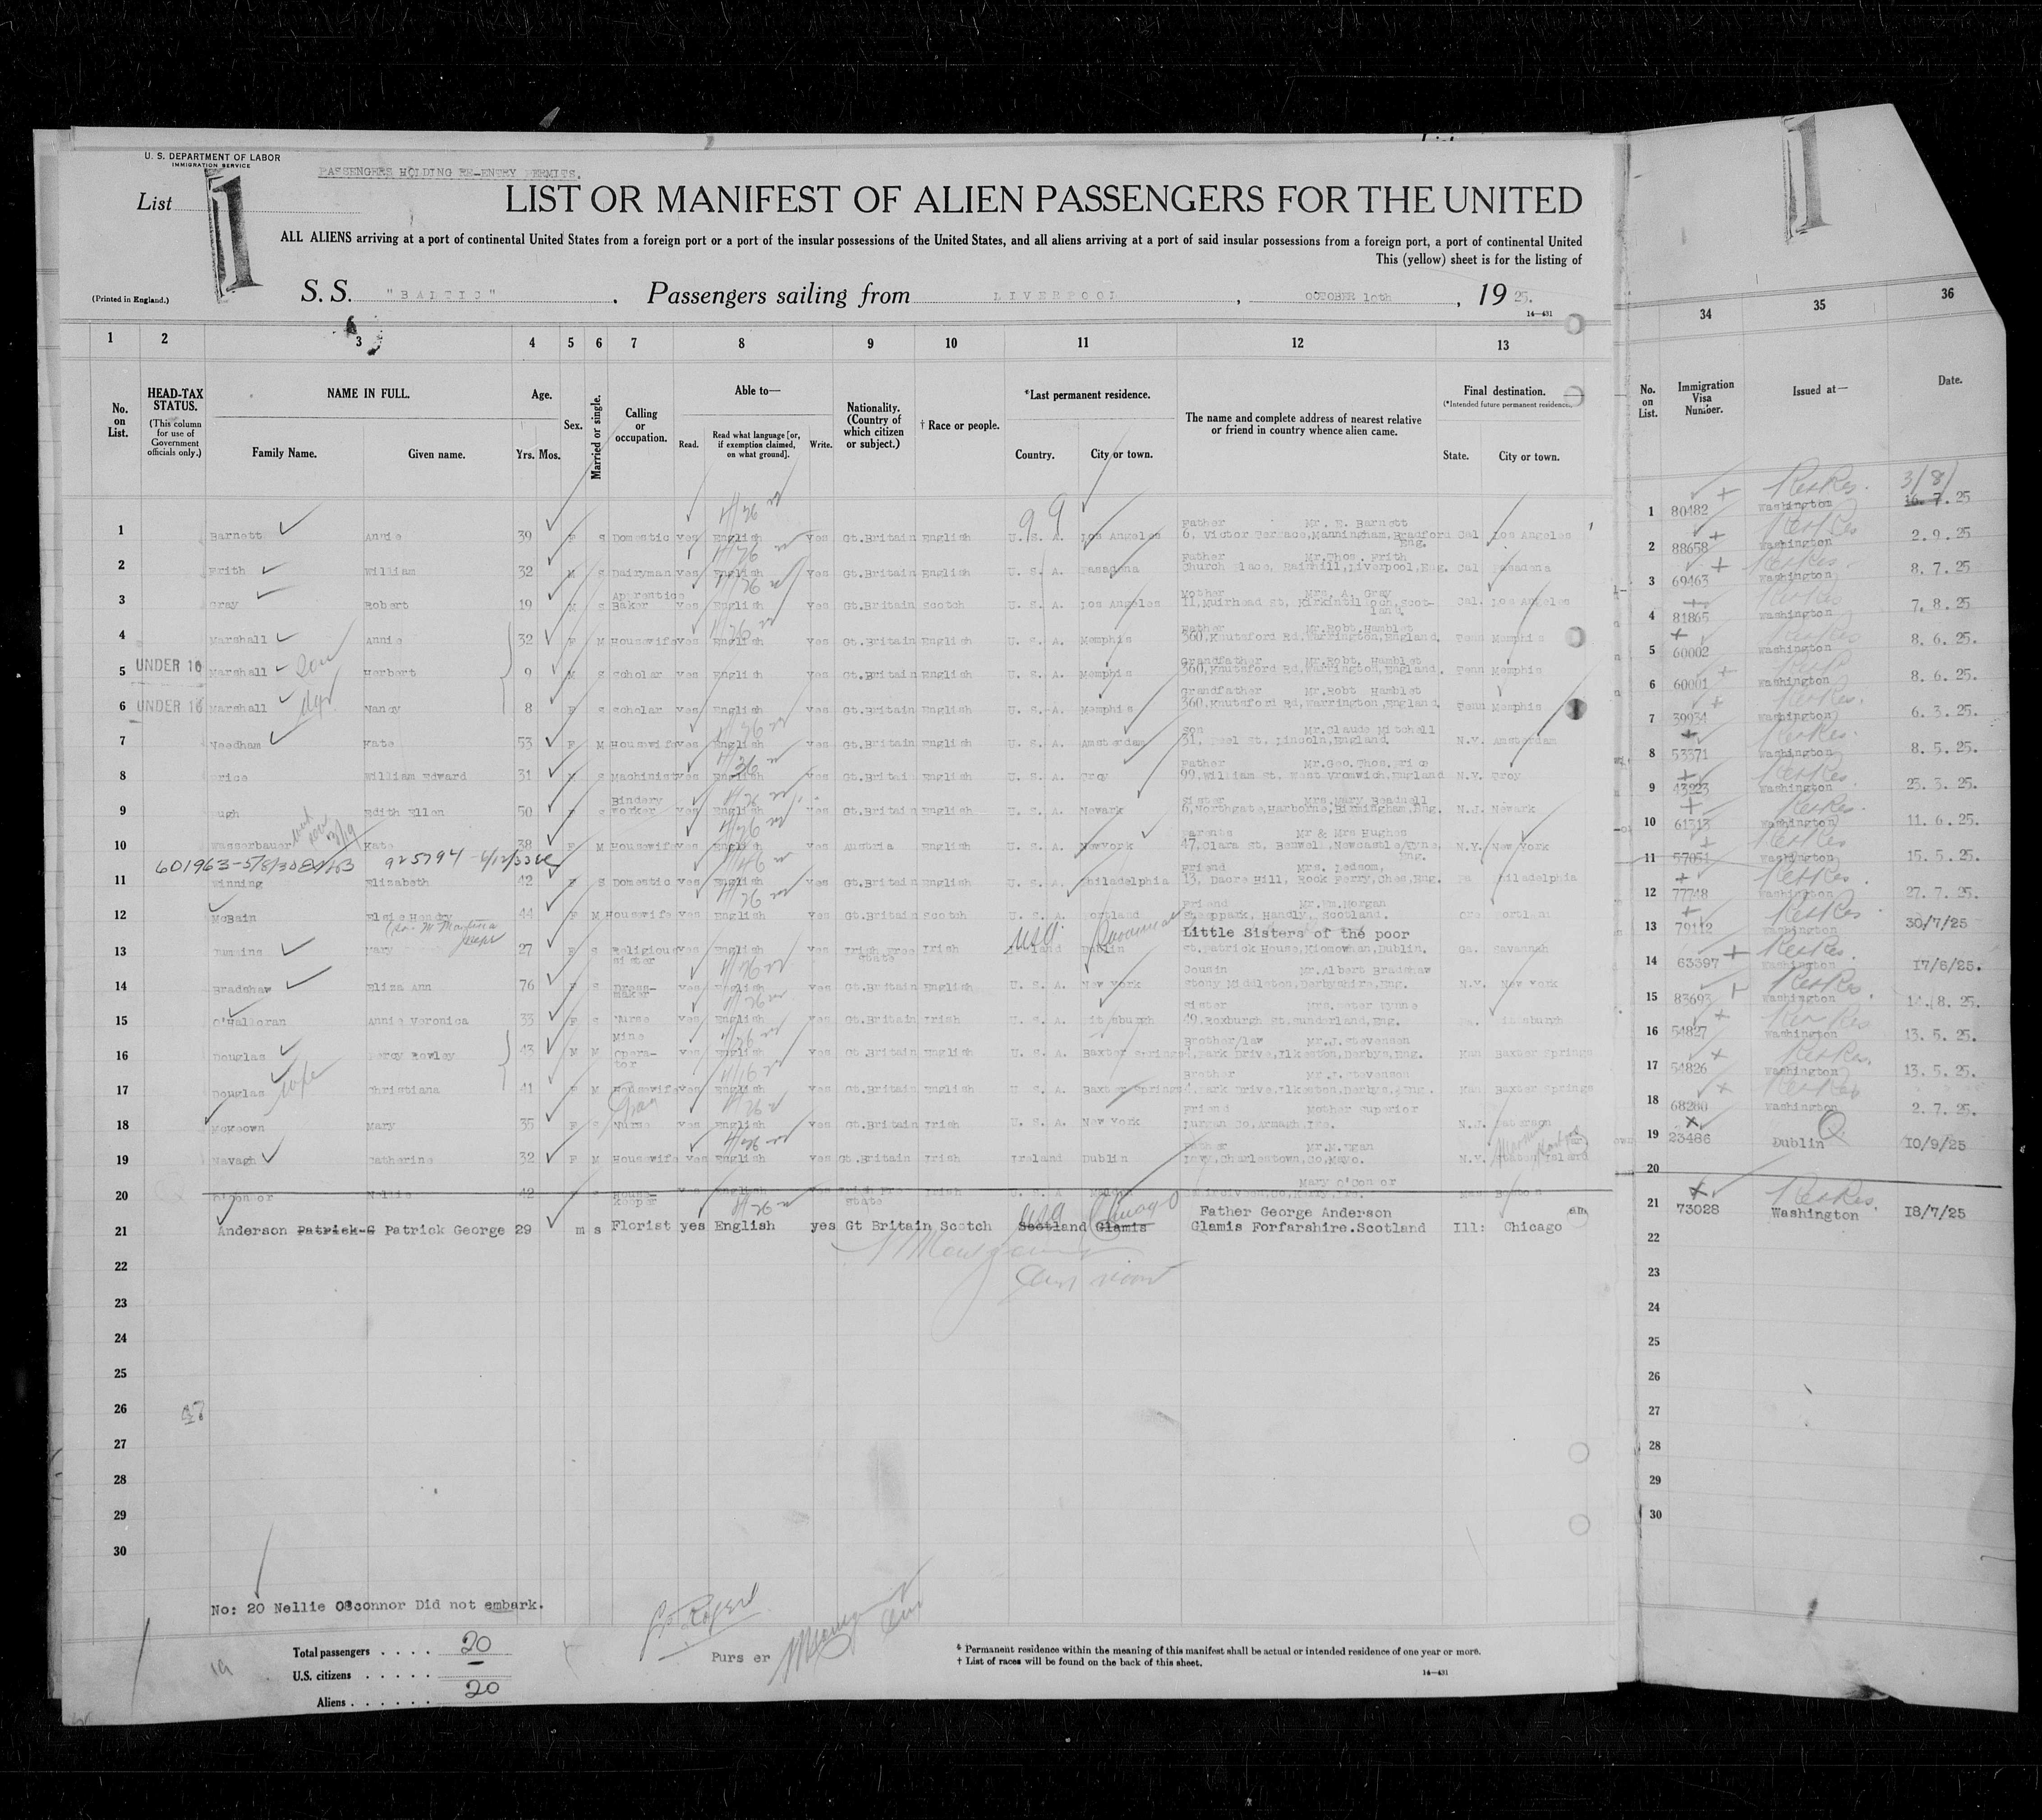 U. S. DEPARTMENT OF LABOR
IMMIGRATION SERVICE
PASSENGERS HOLDING RE-ENTRY PERMITS.
List 1
LIST OR MANIFEST OF ALIEN PASSENGERS FOR THE UNITED
ALL ALIENS arriving at a port of continental United States from a foreign port or a port of the insular possessions of the United States, and all aliens arriving at a port of said insular possessions from a foreign port, a port of continental United
This (yellow) sheet is for the listing of
(Printed in England.)
S. S. "BALTIC". Passengers sailing from LIVERPOOL, OCTOBER 10th, 19 25.
14—431
1 2 3 4 5 6 7 8 9 10 11 12 13
No. on List.
HEAD-TAX STATUS.
(This column for use of Government officials only.)
NAME IN FULL.
Family Name. Given name.
Age.
Yrs. Mos.
Sex.
Married or single.
Calling or occupation.
Able to—
Read. Read what language [or, if exemption claimed, on what ground]. Write.
Nationality. (Country of which citizen or subject.)
† Race or people.
*Last permanent residence.
Country. City or town.
The name and complete address of nearest relative or friend in country whence alien came.
Final destination.
(*Intended future permanent residence.)
State. City or town.
1 Barnett Annie 39 F S Domestic Yes English Yes Gt.Britain English U. S. A. Los Angeles Father Mr. E. Barnett 6, Victor Terrace, Manningham, Bradford Eng. Cal Los Angeles
2 Frith William 32 M S Dairyman Yes English Yes Gt.Britain English U. S. A. Pasadena Father Mr.Thos. Frith Church Place, Rainhill, Liverpool, Eng. Cal Pasadena
3 Gray Robert 19 M S Apprentice Baker Yes English Yes Gt.Britain Scotch U. S. A. Los Angeles Mother Mrs. A. Gray 11, Muirhead St, Kirkintilloch, Scotland. Cal. Los Angeles
4 Marshall Annie 32 F M Housewife Yes English Yes Gt.Britain English U. S. A. Memphis Father Mr.Robt.Hamblet 360, Knutsford Rd, Warrington, England. Tenn Memphis
UNDER 16
5 Marshall Son Herbert 9 M S Scholar Yes English Yes Gt.Britain English U. S. A. Memphis Grandfather Mr.Robt. Hamblet 360, Knutsford Rd, Warrington, England. Tenn Memphis
UNDER 16
6 Marshall Nancy 8 F S Scholar Yes English Yes Gt.Britain English U. S. A. Memphis Grandfather Mr.Robt Hamblet 360, Knutsford Rd, Warrington, England. Tenn Memphis
7 Needham Kate 53 F M Housewife Yes English Yes Gt.Britain English U. S. A. Amsterdam Son Mr.Claude Mitchell 31, Peel St. Lincoln, England. N.Y. Amsterdam
8 Price William Edward 31 M S Machinist Yes English Yes Gt.Britai English U. S. A. Troy Father Mr.Geo.Thos.Price 99, William St. West Bromwich, England N.Y. Troy
9 Pugh Edith Ellen 50 F S Bindery Worker Yes English Yes Gt.Britain English U. S. A. Newark Sister Mrs.Mary Beadnell 6, Northgate, Harborne, Birmingham, Eng. N.J. Newark
10 Wasserbauer Kate 38 F M Housewife Yes English Yes Austria English U. S. A. New York Parents Mr & Mrs Hughes 47, Clara St, Benwell, Newcastle/Tyne, Eng. N.Y. New York
601963-5/8/30 925794 -4/12/33
11 Winning Elizabeth 42 F S Domestic Yes English Yes Gt.Britain English U. S. A. Philadelphia Friend Mrs. Ledsom, 13, Dacre Hill, Rock Ferry, Ches, Eng. Pa Philadelphia
12 McBain Elsie Hendry 44 F M Housewife Yes English Yes Gt.Britain Scotch U. S. A. Portland Friend Mr.Wm.Morgan Sheappark, Handly, Scotland. Ore Portland
13 Cummins Mary 27 F S Religious Sister Yes English Yes Irish Free State Irish Ireland USA Dublin Savannah Little Sisters of the poor St.Patrick House, Kilmainham, Dublin. Ga. Savannah
14 Bradshaw Eliza Ann 76 F S Dress-maker Yes English Yes Gt.Britain English U. S. A. New York Cousin Mr.Albert Bradshaw Stony Middleton, Derbyshire, Eng. N.Y. New York
15 O'Halloran Annie Veronica 33 F S Nurse Yes English Yes Gt.Britain Irish U. S. A. Pittsburgh Sister Mrs. Peter Lynne 49, Roxburgh St. Sunderland, Eng. Pa. Pittsburgh
16 Douglas Percy Rowley 43 M M Mine Opera-tor Yes English Yes Gt.Britain English U. S. A. Baxter Springs Brother/law Mr.J.Stevenson Park Drive, Ilkeston, Derbys, Eng. Kan Baxter Springs
17 Douglas wife Christiana 41 F M Housewife Yes English Yes Gt.Britain English U. S. A. Baxter Springs Brother Mr.J. Stevenson Park Drive, Ilkeston, Derbys, Eng. Kan Baxter Springs
18 McKeown Mary 35 F S Nurse Yes English Yes Gt.Britain Irish U. S. A. New York Friend Mother Superior Lurgan Co, Armagh, Ire. N.J. Paterson
19 Navagh Catherine 32 F M Housewife Yes English Yes Gt.Britain Irish Ireland Dublin Father Charlestown, Co, Mayo. N.Y.
20 O'Connor Nellie 42 F S House-keeper Yes English Irish Free State Irish U. S. A Mary O'Connor Co, Kerry, Ire. Mas Boston
21 Anderson Patrick-G Patrick George 29 m s Florist yes English yes Gt Britain Scotch Scotland USA Glamis Chicago Father George Anderson Glamis Forfarshire.Scotland Ill: Chicago
22
23
24
25
26
27
28
29
30
No: 20 Nellie O'connor Did not embark.
Total passengers . . . . 20
U.S. citizens . . . . . —
Aliens . . . . . . 20
Purs er
* Permanent residence within the meaning of this manifest shall be actual or intended residence of one year or more.
† List of races will be found on the back of this sheet.
14—431
1
34 35 36
No. on List. Immigration Visa Number. Issued at— Date.
1 80482 Washington 16. 7. 25 3/8/
2 88658 Washington 2. 9. 25
3 69463 Washington 8. 7. 25
4 81865 Washington 7. 8. 25
5 60002 Washington 8. 6. 25.
6 60001 Washington 8. 6. 25.
7 39934 Washington 6. 3. 25.
8 53371 Washington 8. 5. 25.
9 43223 Washington 25. 3. 25.
10 61313 Washington 11. 6. 25.
11 57051 Washington 15. 5. 25.
12 77748 Washington 27. 7. 25.
13 79112 Washington 30/7/25
14 63397 Washington 17/6/25.
15 83693 Washington 14. 8. 25.
16 54827 Washington 13. 5. 25.
17 54826 Washington 13. 5. 25.
18 68280 Washington 2. 7. 25.
19 23486 Dublin 10/9/25
20
21 73028 Washington 18/7/25
22
23
24
25
26
27
28
29
30